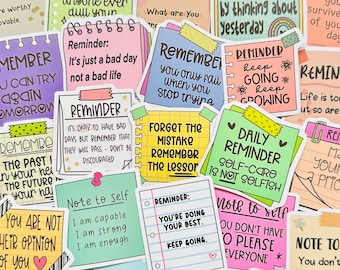 worthy
What are you
by thinking about
yesterday
survived
of you
day
Reminder:
It's just a bad day
not a bad life
REMEMBER
YOU CAN TRY
AGAIN
TOMORROW
REMEMBER
YOU ONLY FAIL
WHEN YOU
STOP TRYING
REMINDED
keep
GOING
keep
GROWING
REMINDER
Life is to
but so are
REMINDER
IT'S OKAY TO HAVE BAD
DAYS BUT REMEMBER THAT
THEY WILL PASS - DON'T BE
DISCOURAGED
FORGET THE
MISTAKE
REMEMBER
THE LESSON
DAILY
REMINDER
SELF-CARE
IS NOT SELFISH
Remember
THE PAST
IN YOUR HEAD
THE FUTURE
YOUR
Note to Self
I am capable
I am strong
I am enough
REMINDER:
YOU'RE DOING
YOUR BEST.
KEEP GOING.
Note to Self
YOU DON'T HAVE
TO PLEASE
EVERYONE
YOU ARE NOT
THEIR OPINION
OF YOU
NOTE TO
You don't